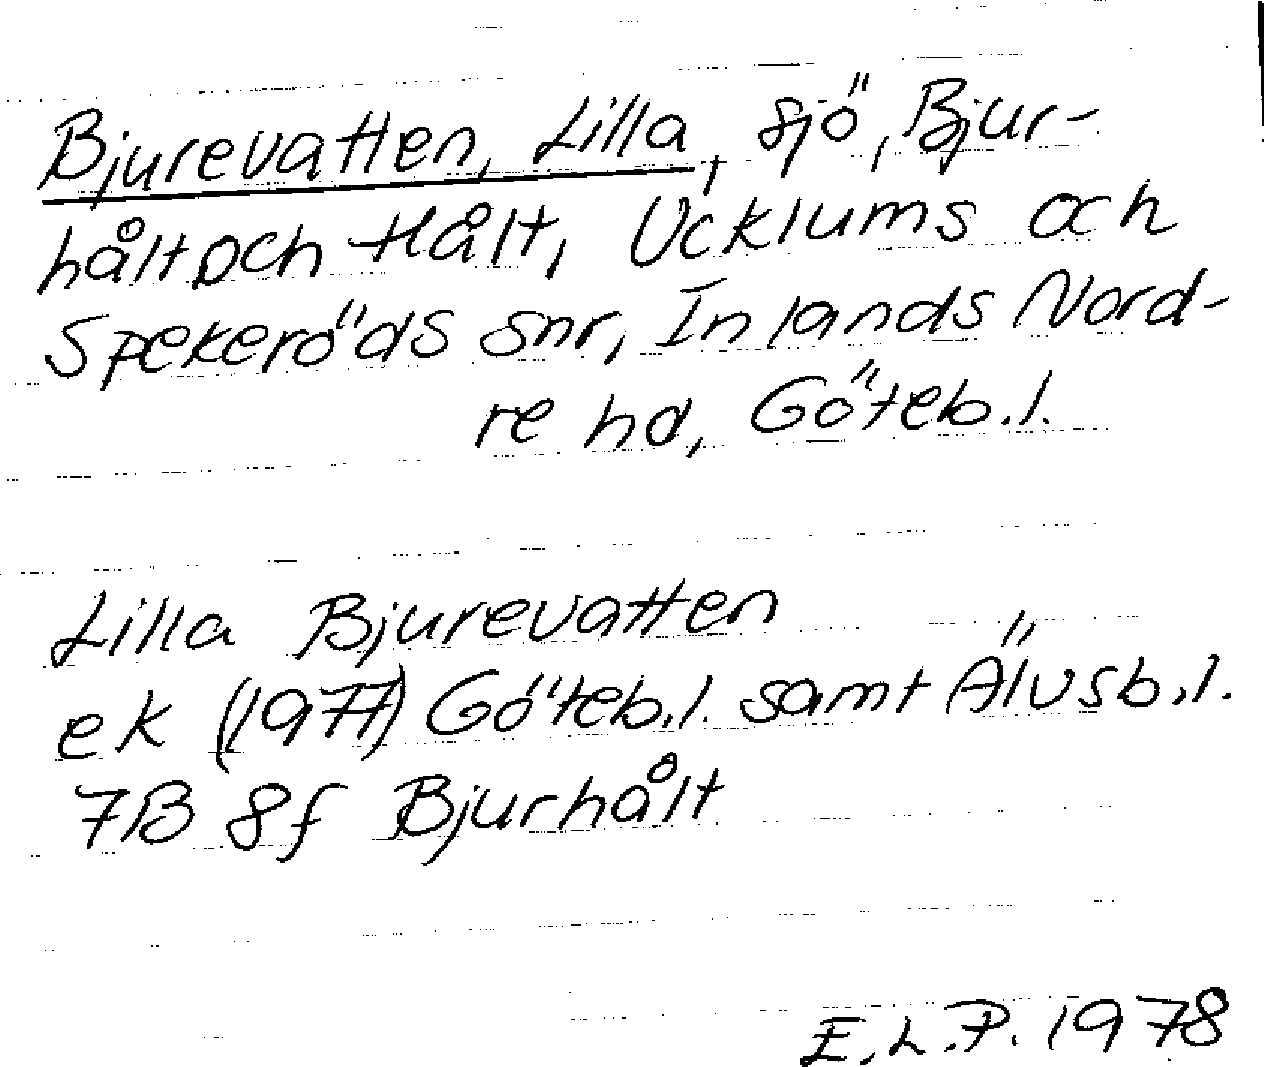 Bjurevatten, Lilla, sjö, Bjur-
hålt och Hålt, Ucklums och
Spekeröds snr, Inlands Nord-
re hd, Göteb.l.
Lilla Bjurevatten
ek (1977) Göteb.l. samt Älvsb.l.
7B 8f Bjurhålt
E.L.P. 1978